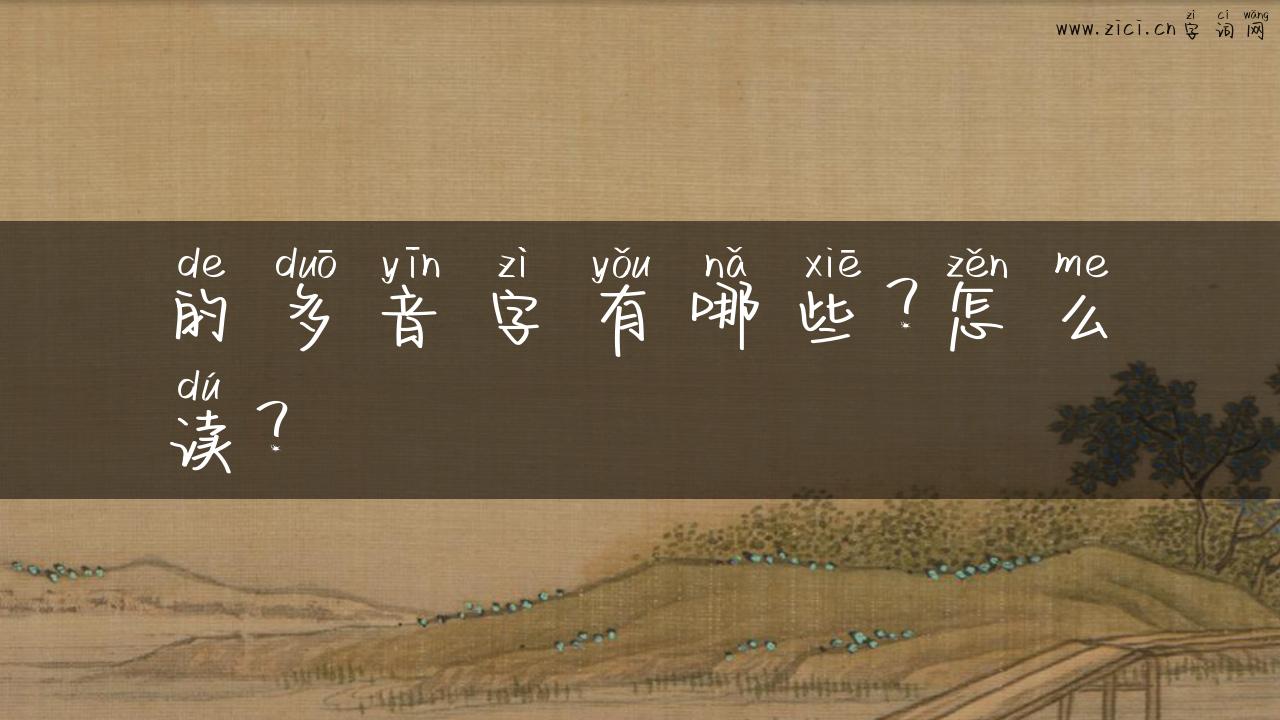 zì cí wǎng
www.zici.cn字词网
de duō yīn zì yǒu nǎ xiē zěn me
的多音字有哪些？怎么
dú
读？